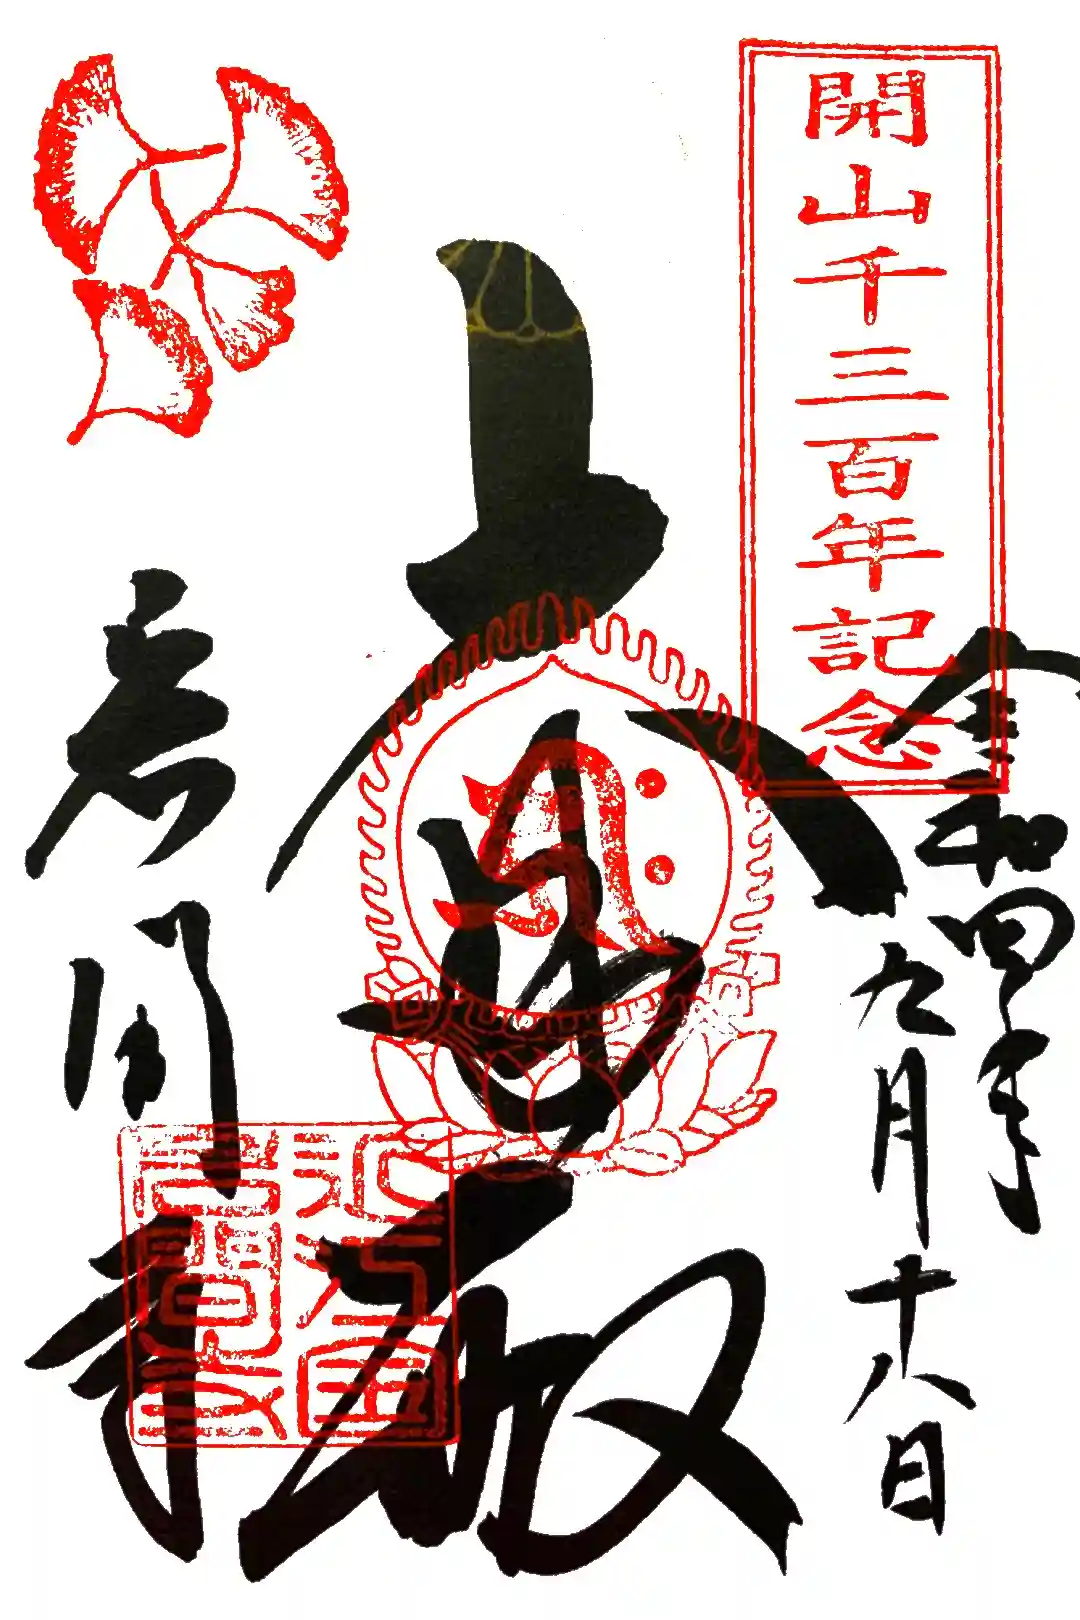 開山千三百年記念
令和四年九月十八日
大悲殿
岩間寺